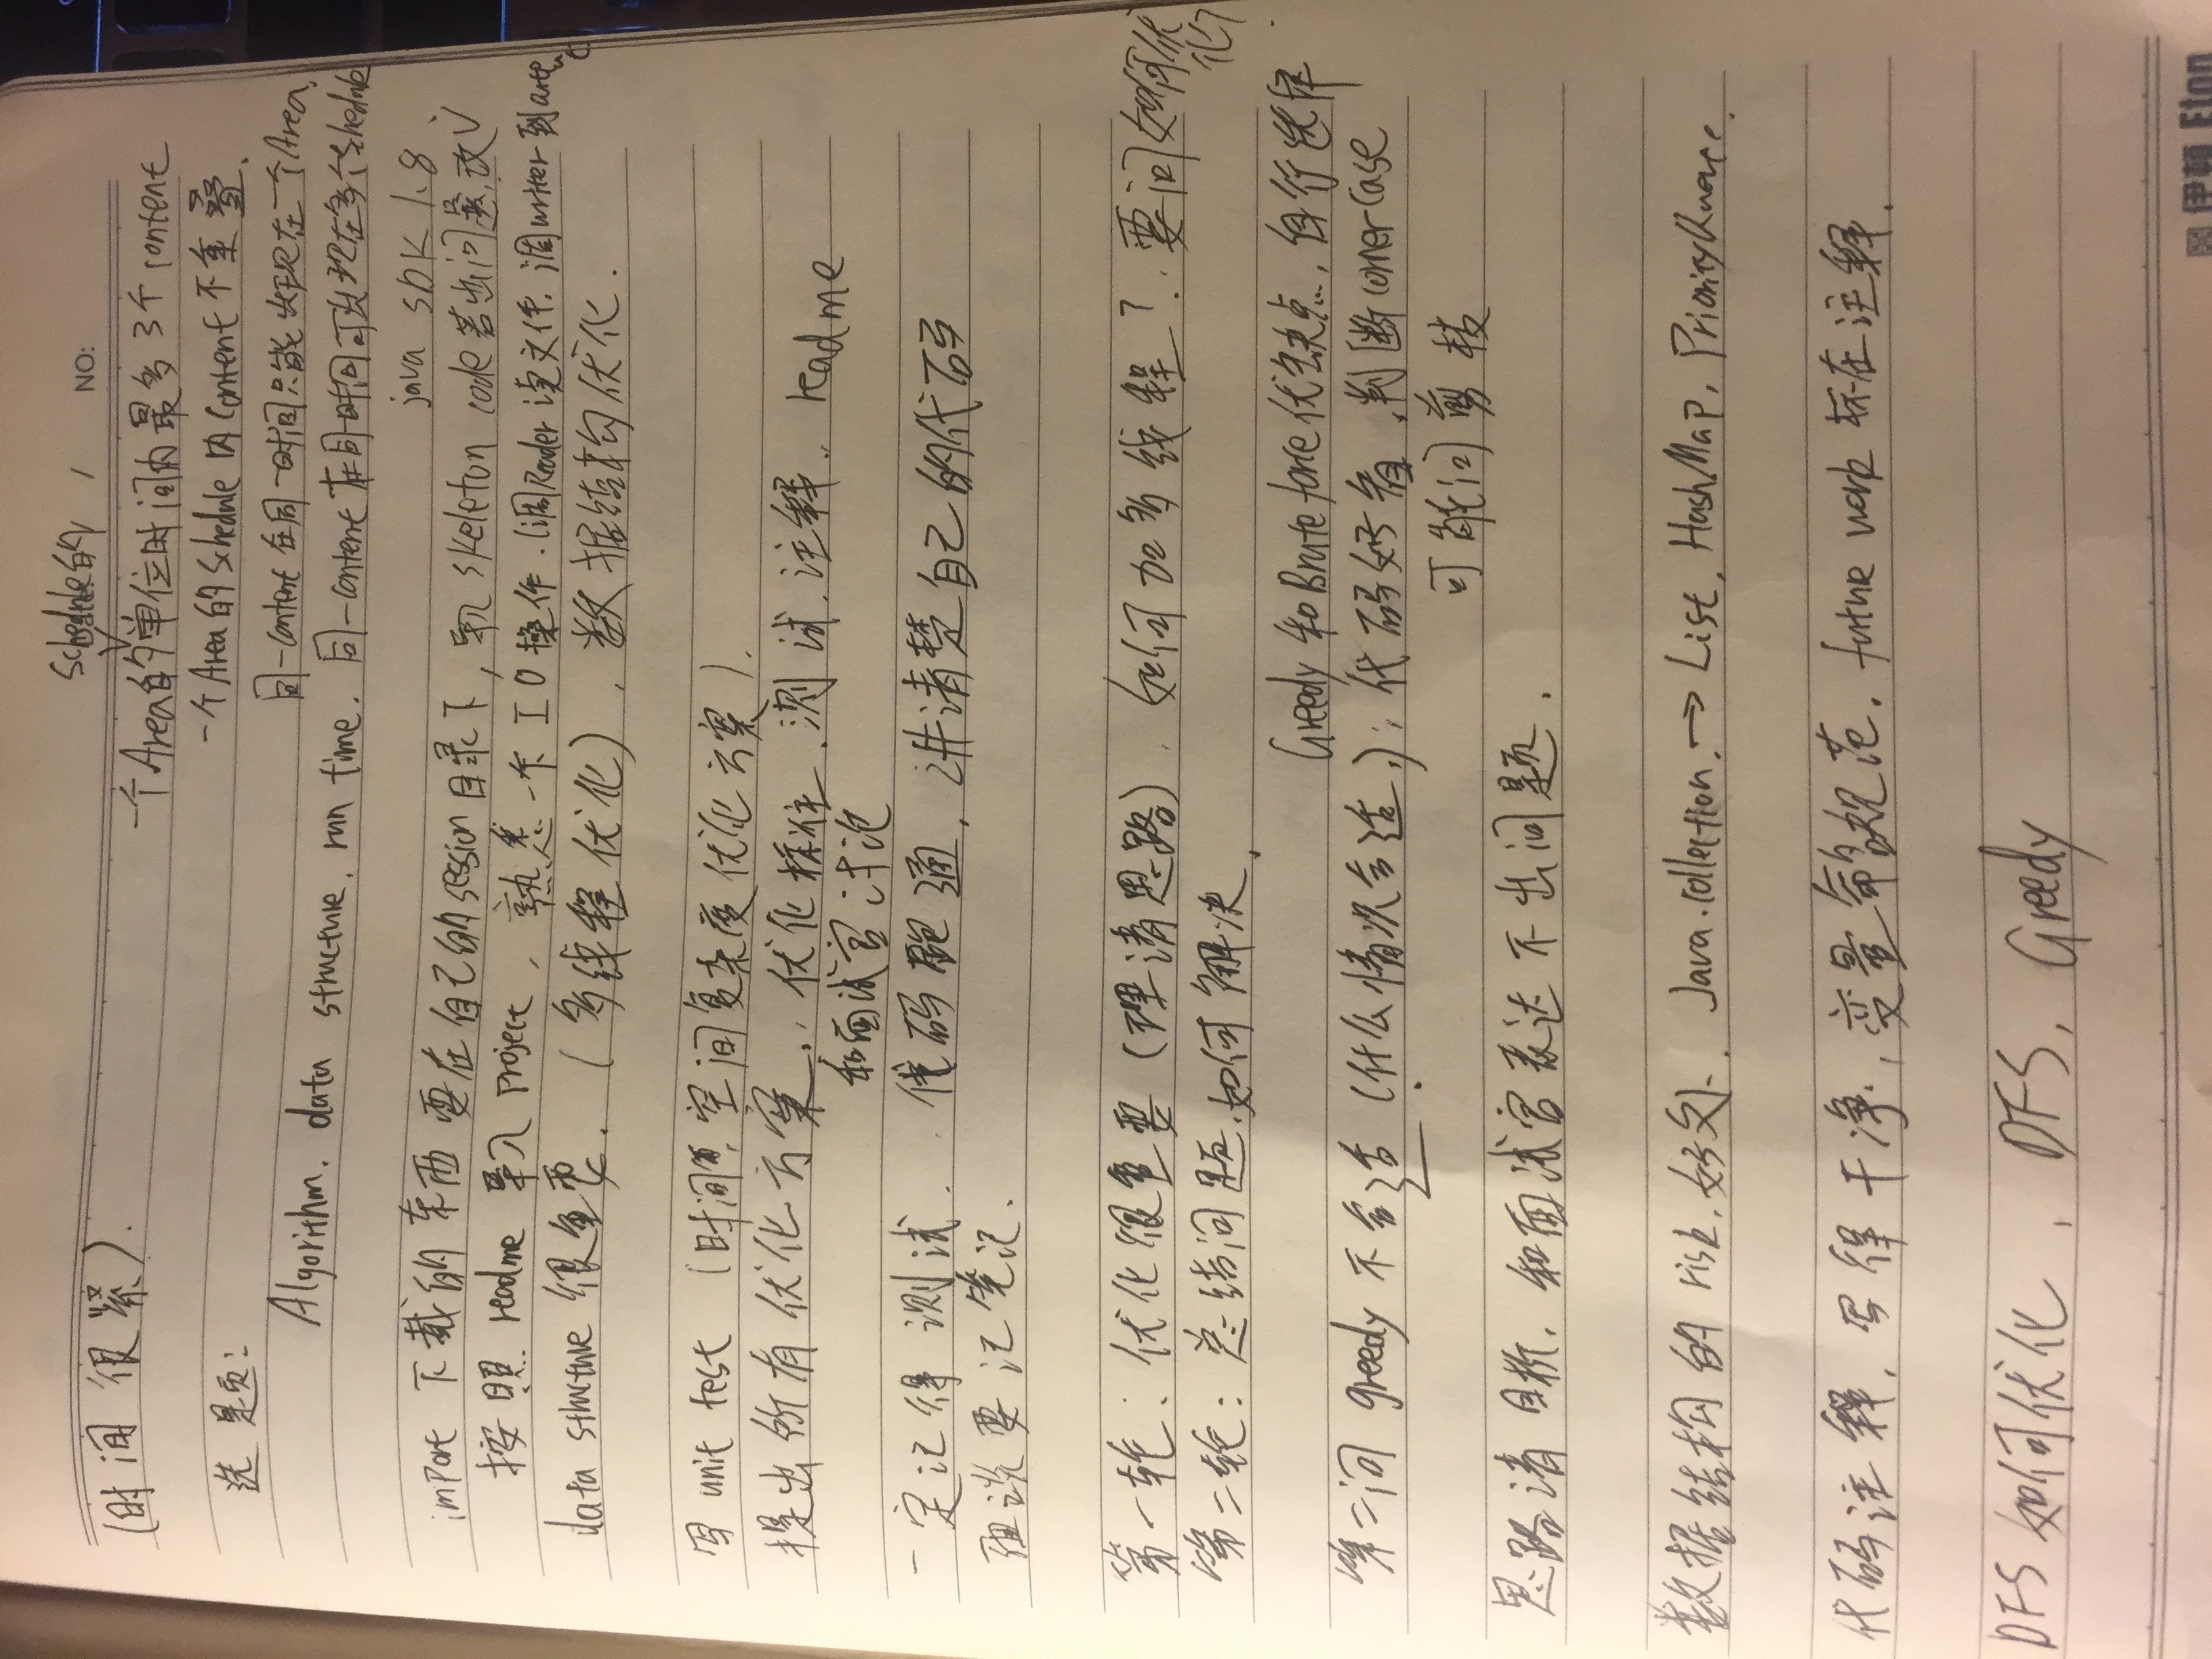 Schedule的 / NO:
(时间很紧).
一个Area的单位时间内最多3个content
一个Area的Schedule内Content不重叠.
选题:
同一content在同一时间只能出现在一个Area,
Algorithm. data structure. run time.
同一content在同一时间可出现在多个schedule
java SDK 1.8.
import 下载的东西要在自己的session目录下, 导入skeleton code若出问题,改
按照readme导入project, 熟悉一下IO操作.(调Reader读文件. 调writer到
data structure很重要. (多线程优化), 数据结构优化.
写unit test (时间, 空间复杂度优化方案).
提出所有优化方案., 优化标注.测试.注释.. readme
和面试官讨论
一定记得测试. 代码跑通, 讲清楚自己的代码
组谈要记笔记.
第一轮: 优化很重要(理清思路). 如何加多线程?. 要问如何优
化?
第二轮: 总结问题.如何解决.
Greedy和Brute force优缺点, 自行选择
第二问greedy不合适(什么情况合适.); 代码好看.判断corner case
可能问剪枝
思路清晰. 和面试官表达不出问题.
数据结构的risk.好处. Java.collection. → List, HashMap, PriorityQueue.
代码注释, 写得干净, 变量命名规范. future work 标在注释.
DFS如何优化, DFS, Greedy
伊頓 Eton